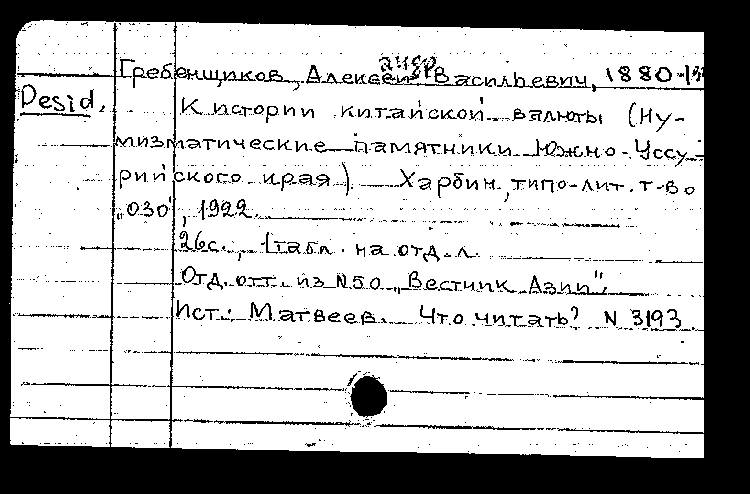 андр
Гребенщиков, Алексей Васильевич, 1880-19
Desid. К истории китайской валюты (Ну-
мизматические памятники Южно-Уссу-
рийского края). Харбин, типо-лит. т-во
"ОЗО", 1922.
26с., 1табл. на отд.л.
Отд. отт. из N50 "Вестник Азии".
Ист.: Матвеев. Что читать? N 3193.